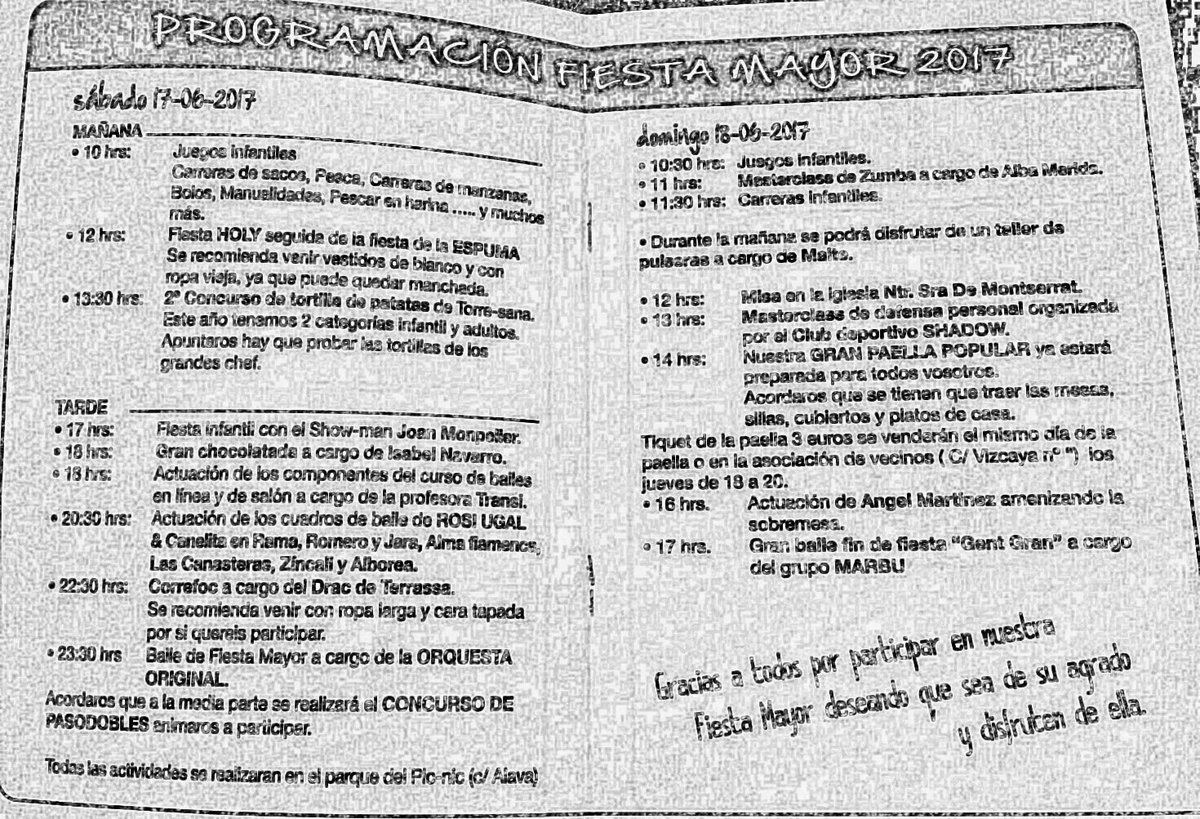 PROGRAMACIÓN FIESTA MAYOR 2017
sábado 17-06-2017
MAÑANA
• 10 hrs: Juegos infantiles
Carreras de sacos, Pesca, Carreras de manzanas,
Bolos, Manualidades, Pescar en harina ..... y muchos
más.
• 12 hrs: Fiesta HOLY seguida de la fiesta de la ESPUMA
Se recomienda venir vestidos de blanco y con
ropa vieja, ya que puede quedar manchada.
• 13:30 hrs: 2º Concurso de tortilla de patatas de Torre-sana.
Este año tenemos 2 categorías infantil y adultos.
Apuntaros hay que probar las tortillas de los
grandes chef.
TARDE
• 17 hrs: Fiesta infantil con el Show-man Joan Monpeller.
• 18 hrs: Gran chocolatada a cargo de Isabel Navarro.
• 18 hrs: Actuación de los componentes del curso de bailes
en línea y de salón a cargo de la profesora Transi.
• 20:30 hrs: Actuación de los cuadros de baile de ROSI UGAL
& Canelita en Rama, Romero y Jara, Alma flamenco,
Las Canasteras, Zincali y Alborea.
• 22:30 hrs: Correfoc a cargo del Drac de Terrassa.
Se recomienda venir con ropa larga y cara tapada
por si quereis participar.
• 23:30 hrs Baile de Fiesta Mayor a cargo de la ORQUESTA
ORIGINAL.
Acordaros que a la media parte se realizará el CONCURSO DE
PASODOBLES animaros a participar.
Todas las actividades se realizaran en el parque del Pic-nic (c/ Alava)
domingo 18-06-2017
• 10:30 hrs: Juegos infantiles.
• 11 hrs: Masterclass de Zumba a cargo de Alba
• 11:30 hrs: Carreras infantiles.
• Durante la mañana se podrá disfrutar de un taller de
pulseras a cargo de Maite.
• 12 hrs: Misa en la iglesia Ntr. Sra De Montserrat.
• 13 hrs: Masterclass de defensa personal organizada
por el Club deportivo SHADOW.
• 14 hrs: Nuestra GRAN PAELLA POPULAR ya estará
preparada para todos vosotros.
Acordaros que se tienen que traer las mesas,
sillas, cubiertos y platos de casa.
Tiquet de la paella 3 euros se venderán el mismo día de la
paella o en la asociación de vecinos ( C/ Vizcaya nº ") los
jueves de 18 a 20.
• 16 hrs. Actuación de Angel Martínez amenizando la
sobremesa.
• 17 hrs. Gran baile fin de fiesta "Gent Gran" a cargo
del grupo MARBU
Gracias a todos por participar en nuestra
Fiesta Mayor deseando que sea de su agrado
y disfruten de ella.